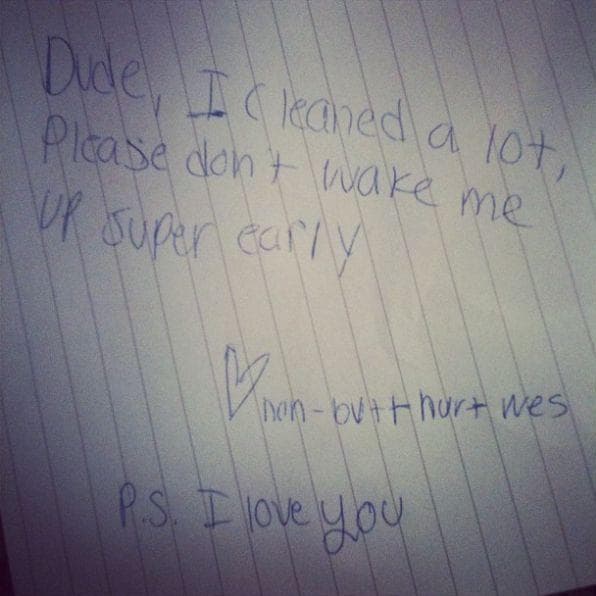 Dude, I Cleaned a lot,
Please don't wake me
up super early
non-butthurt wes
P.S. I love you